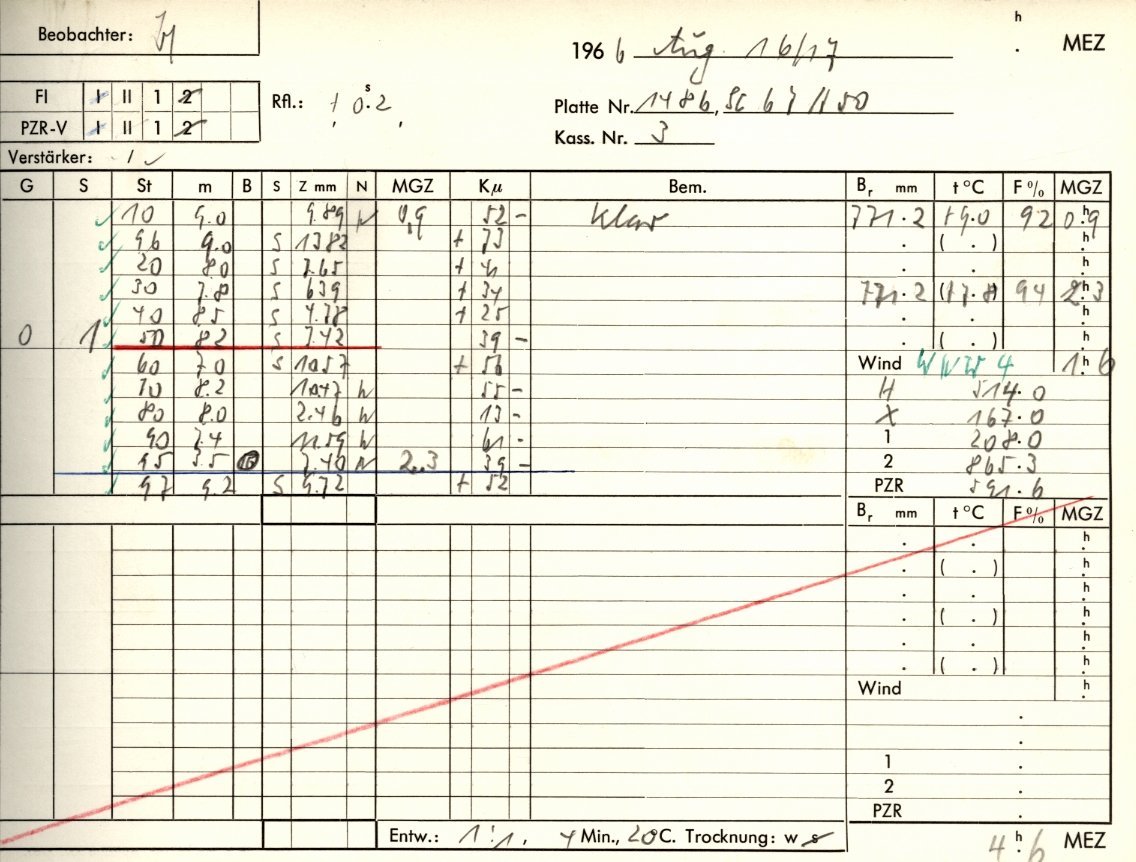 Beobachter:
1966 Aug. 16/17 h . MEZ
FI I II 1 2
Rfl.: + 0s.2
Platte Nr. 1486,
PZR-V I II 1 2
Kass. Nr. 3
Verstärker: 1
G S St m B S Z mm N MGZ Kµ Bem. Br mm t °C F % MGZ
10 9.0 9.89 N 0.9 52 - klar 771.2 92 0h.9
96 9.0 S 1382 + 73 . ( . ) h.
20 8.0 S 7.65 + 41 . . h.
30 7.8 S 639 + 34 771.2 94 2h.3
40 8.5 S 4.78 + 25 . . h.
0 1 50 82 S 7.42 39 - . ( . ) h.
60 70 S 1057 + 56 Wind WNW 4 1h.6
70 8.2 1047 N 55 - H 514.0
80 8.0 2.46 N 13 - X 167.0
90 7.4 11.59 N 61 - 1 208.0
95 7.40 N 2.3 39 - 2 865.3
97 9.2 S 9.72 + 52 PZR 591.6
Br mm t °C F % MGZ
. . h.
. ( . ) h.
. . h.
. ( . ) h.
. . h.
. ( . ) h.
Wind h.
.
.
1 .
2 .
PZR .
Entw.: 1:1, 4 Min., 20°C. Trocknung: w s
4h.6 MEZ